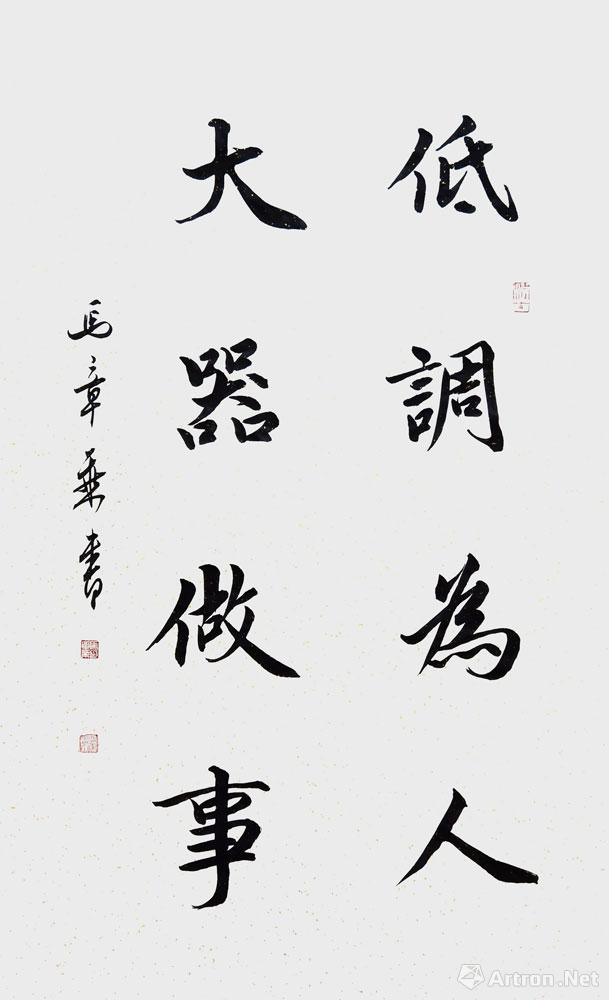 低調為人
大器做事
馬章乘書
Artron.Net